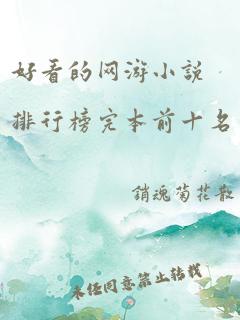 好看的网游小说
排行榜完本前十名
銷魂菊花散
未经同意禁止转载